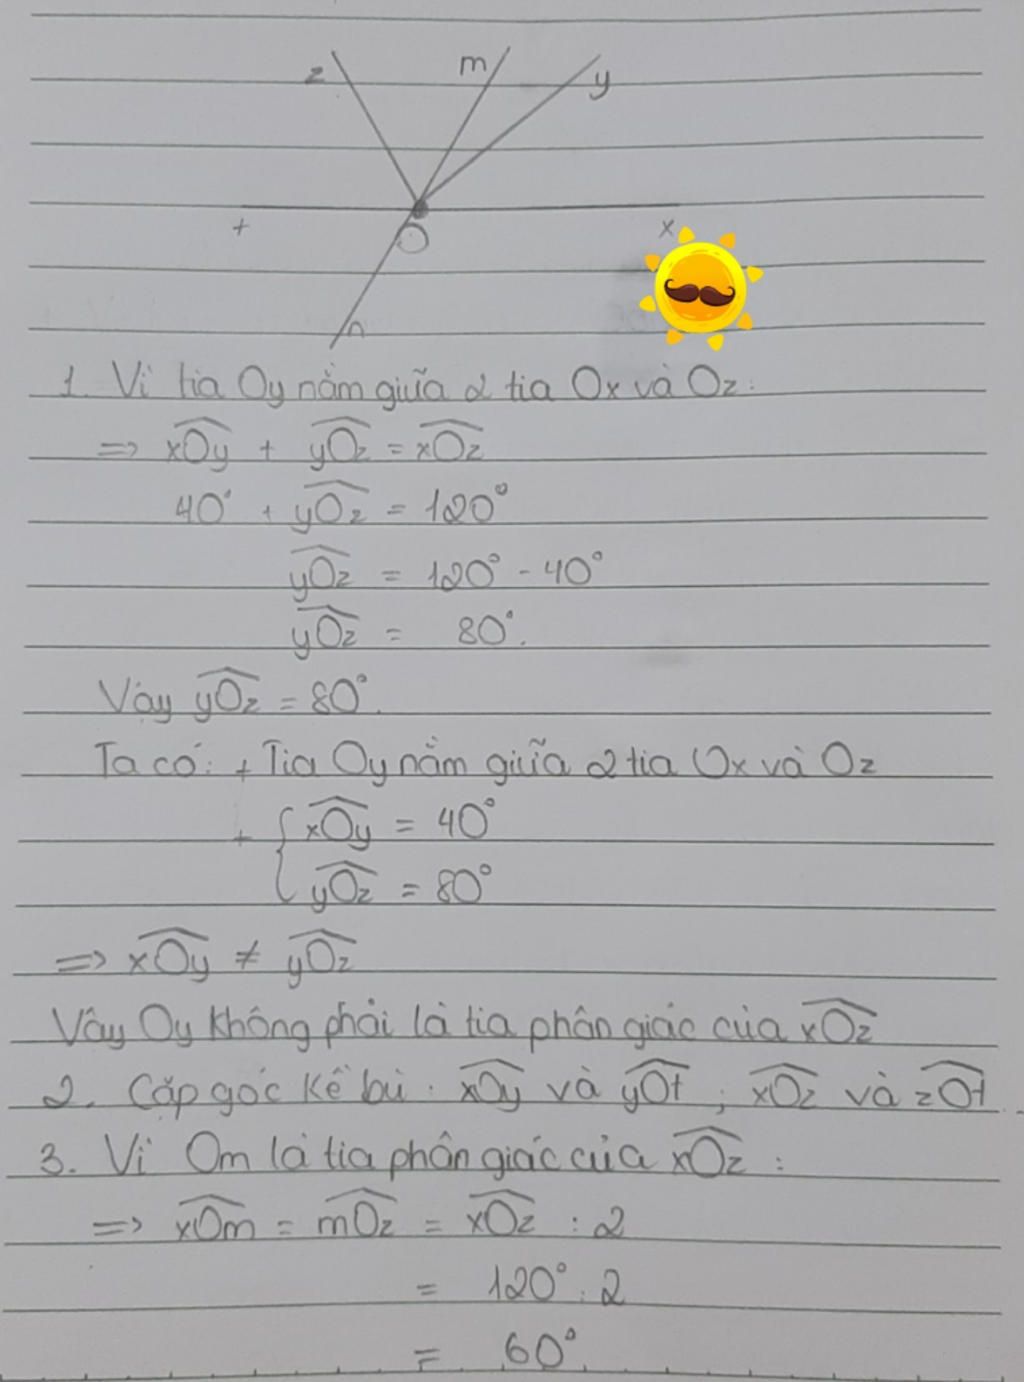 z m y
+ O x
n
1. Vì tia Oy nằm giữa 2 tia Ox và Oz:
=> xOy + yOz = xOz
40° + yOz = 120°
yOz = 120° - 40°
yOz = 80°.
Vậy yOz = 80°.
Ta có: + Tia Oy nằm giữa 2 tia Ox và Oz
+ { xOy = 40°
yOz = 80°
=> xOy ≠ yOz
Vậy Oy không phải là tia phân giác của xOz
2. Cặp góc kề bù: xOy và yOt ; xOz và zOt.
3. Vì Om là tia phân giác của xOz :
=> xOm = mOz = xOz : 2
= 120° : 2
= 60°